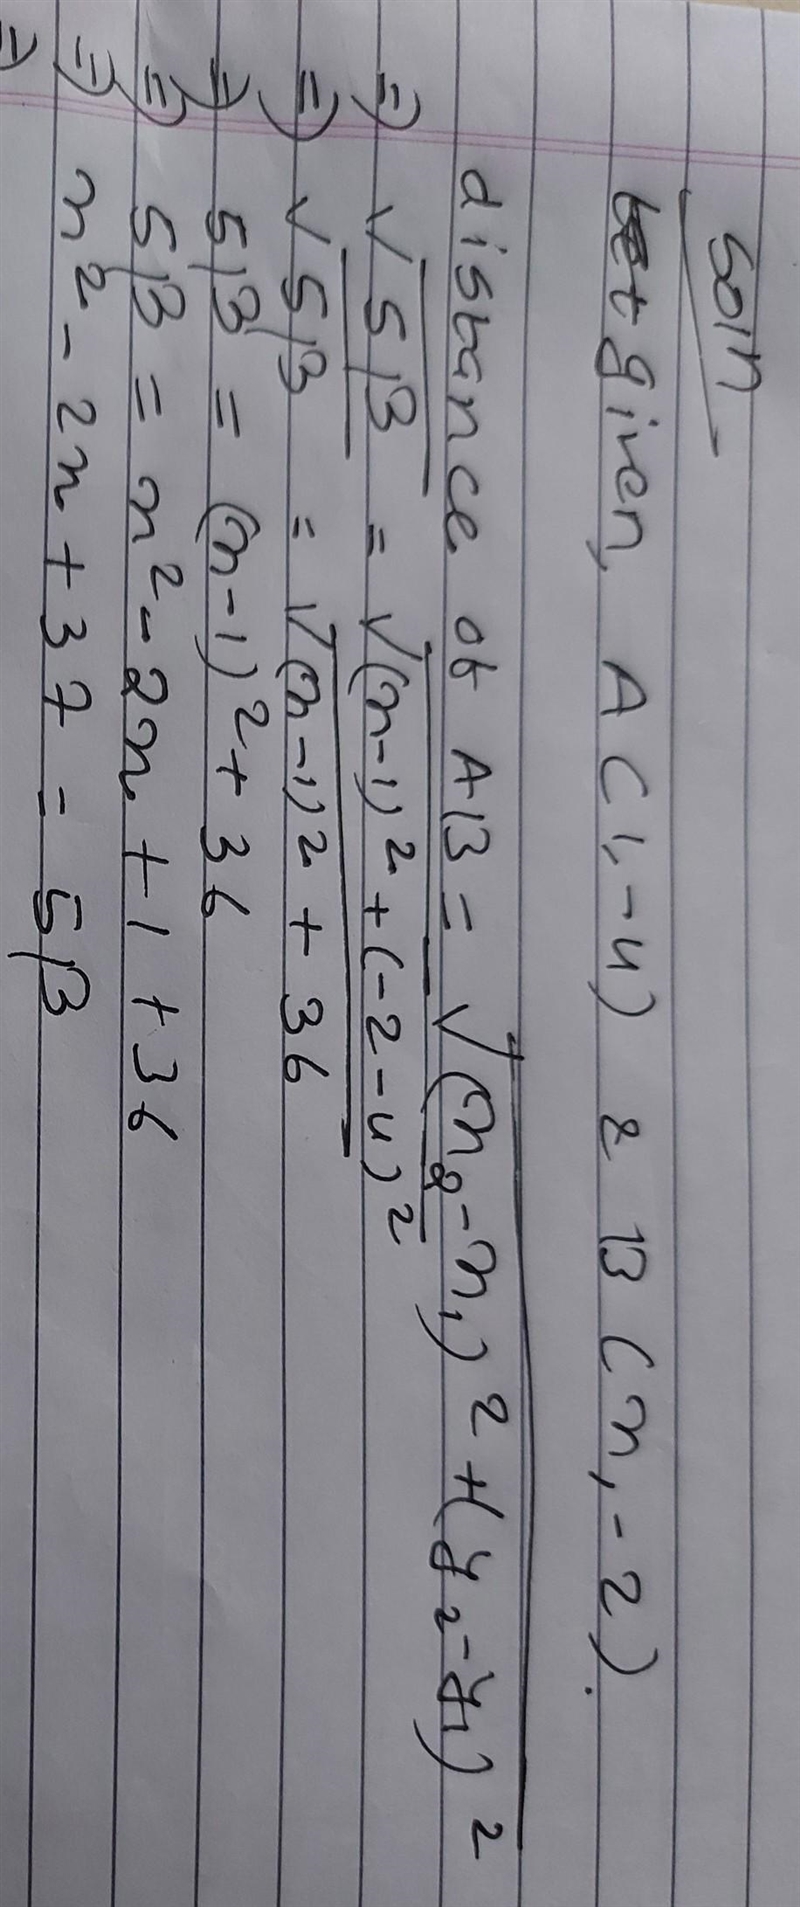 Soln
let given, A(1,-4) & B(x,-2).
distance of AB = √(x₂-x₁)²+(y₂-y₁)²
⇒ √5β = √(x-1)²+(-2-4)²
⇒ √5β = √(x-1)²+36
⇒ 5β = (x-1)²+36
⇒ 5β = x²-2x+1+36
⇒ x²-2x+37=5β
⇒